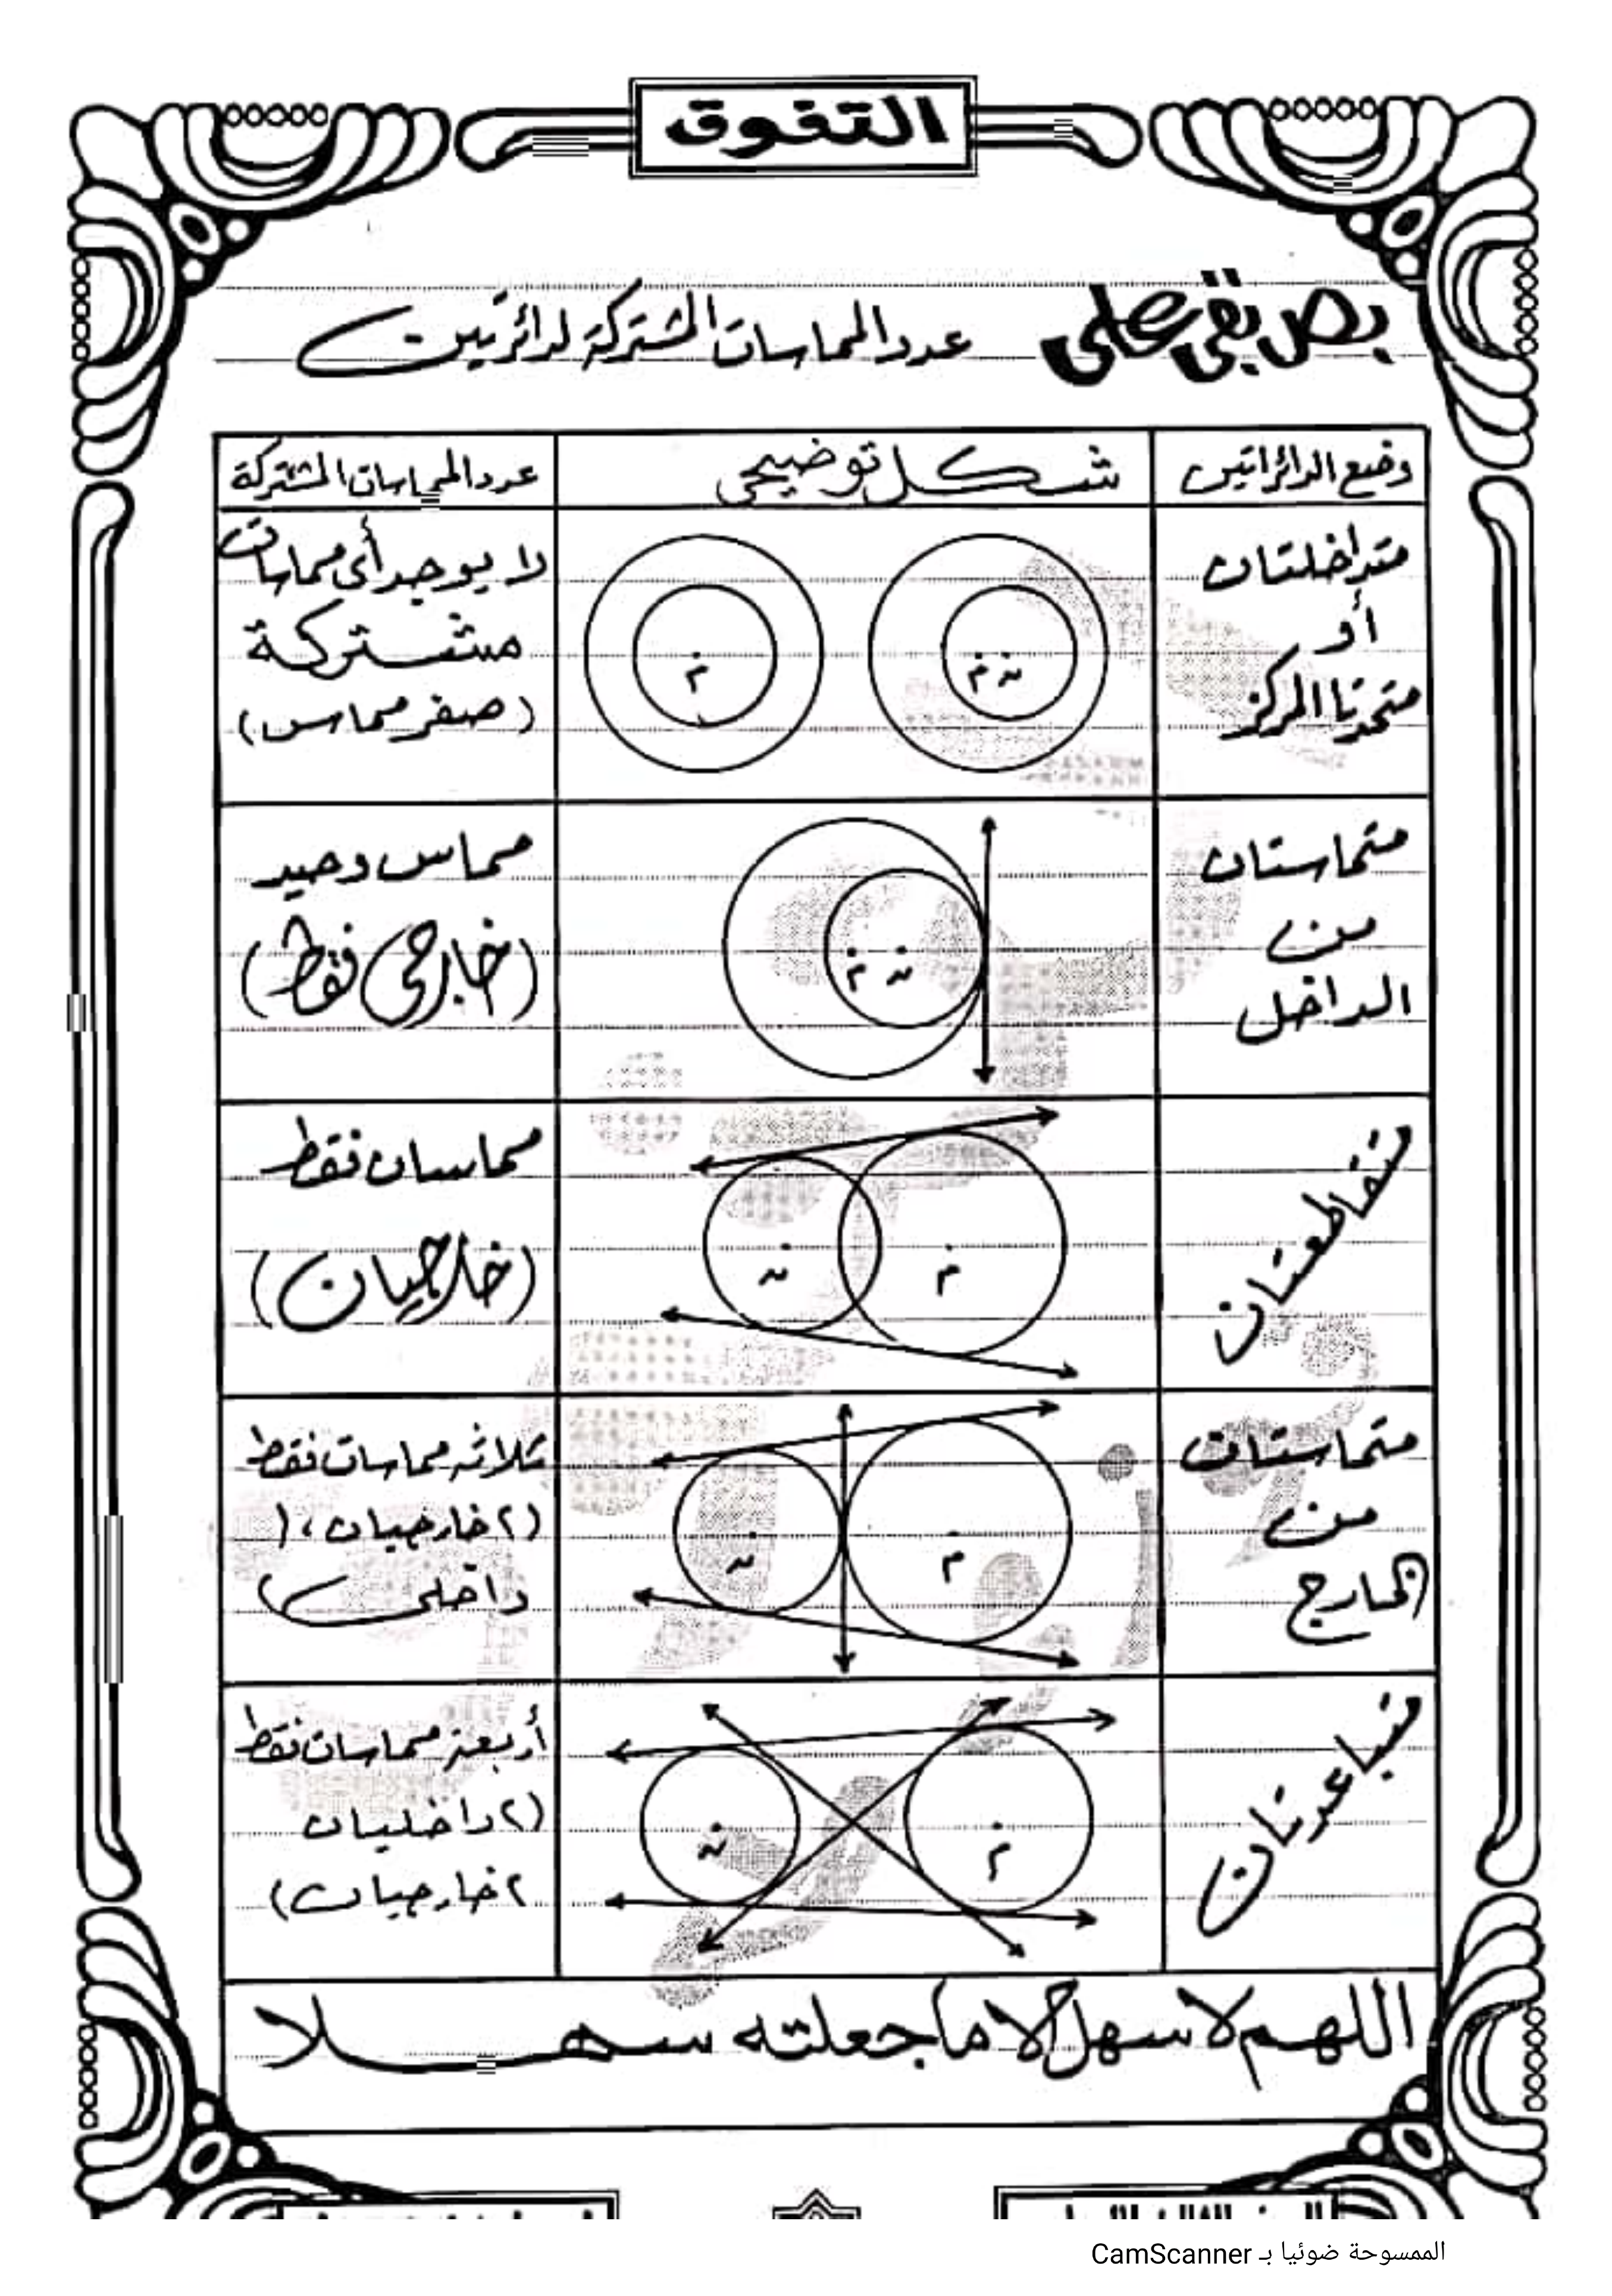 التفوق
بص بقى على عدد المماسات المشتركة لدائرتين
وضع الدائراتين
شكل توضيحى
عدد المماسات المشتركة
متداخلتان
أو
متحدتا المركز
م ن
م
لا يوجد أى مماسات
مشتركة
(صفر مماس)
متماستان
من
الداخل
م ن
مماس وحيد
(خارجى فقط)
متقاطعتان
ن
م
مماسان فقط
(خارجيان)
متماستان
من
الخارج
ن
م
ثلاثه مماسات فقط
(٢ خارجيان، ١
داخلى)
متباعدتان
ن
م
أربعة مماسات فقط
(٢ داخليان
٢ خارجيان)
اللهم لا سهل إلا ما جعلته سهلا
الممسوحة ضوئيا بـ CamScanner